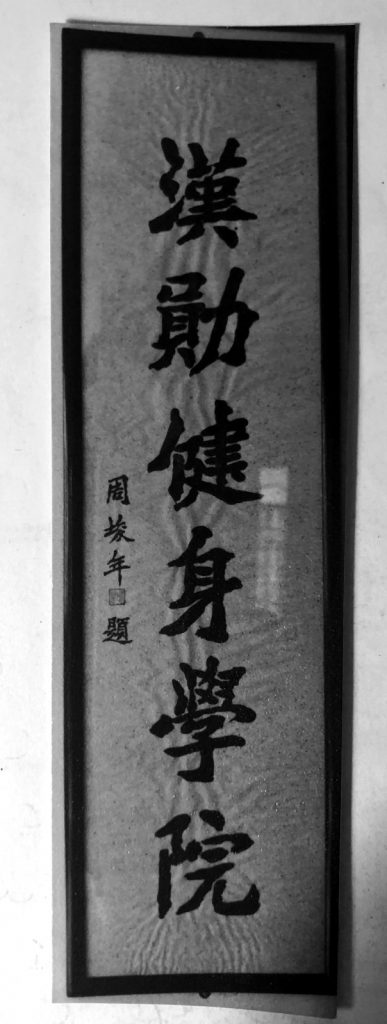 漢勛健身學院
周埈年題